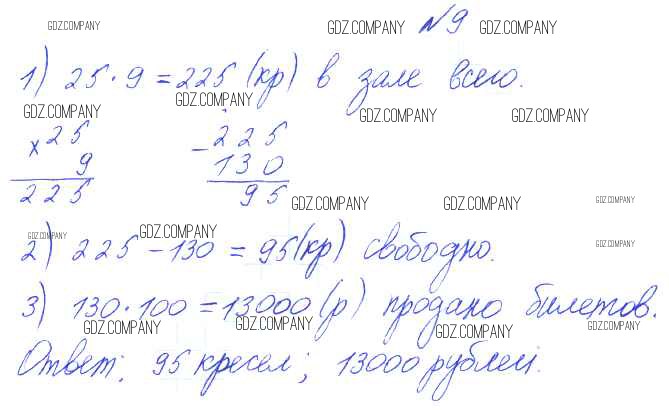 GDZ.COMPANY GDZ.COMPANY №9 GDZ.COMPANY
1) 25·9=225 (кр) в зале всего.
GDZ.COMPANY GDZ.COMPANY GDZ.COMPANY GDZ.COMPANY
×25 −225
9 130
225 95
GDZ.COMPANY GDZ.COMPANY GDZ.COMPANY
GDZ.COMPANY GDZ.COMPANY GDZ.COMPANY
2) 225−130=95(кр) свободно.
3) 130·100=13000(р) продано билетов.
GDZ.COMPANY GDZ.COMPANY GDZ.COMPANY GDZ.COMPANY
Ответ: 95 кресел; 13000 рублей.